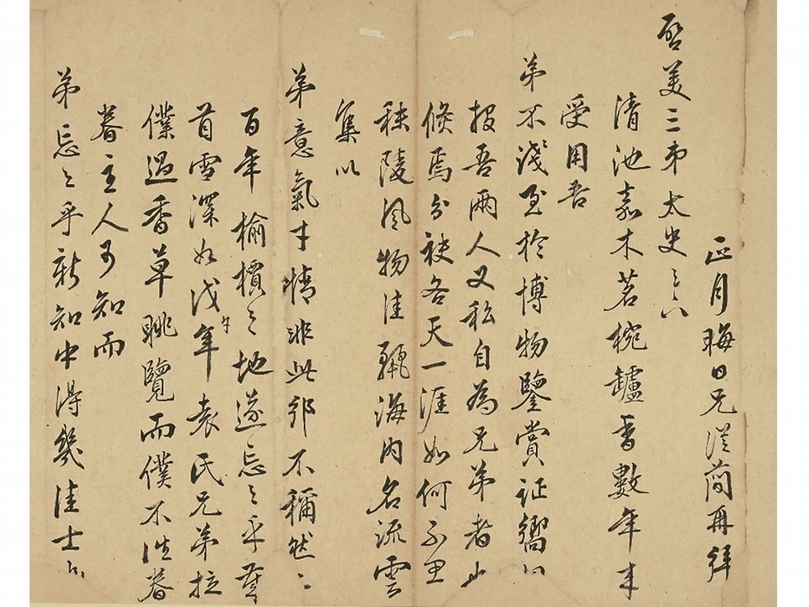 正月晦日兄從簡再拜
啓美三弟太史
清池嘉木茗椀鑪香數年來
受用吾
弟不淺至於博物鑒賞証嚮以
報吾兩人又私自為兄弟者
焉分袂各天一涯如何可思
秣陵風物佳麗海內名流雲
集以
弟意氣才情非此不稱然
百年榆檟之地遂忘之乎
首雪深如戊午年袁氏兄弟拉
僕過香草眺覽而僕不
主人可知而
弟忘之乎新知中得幾佳士